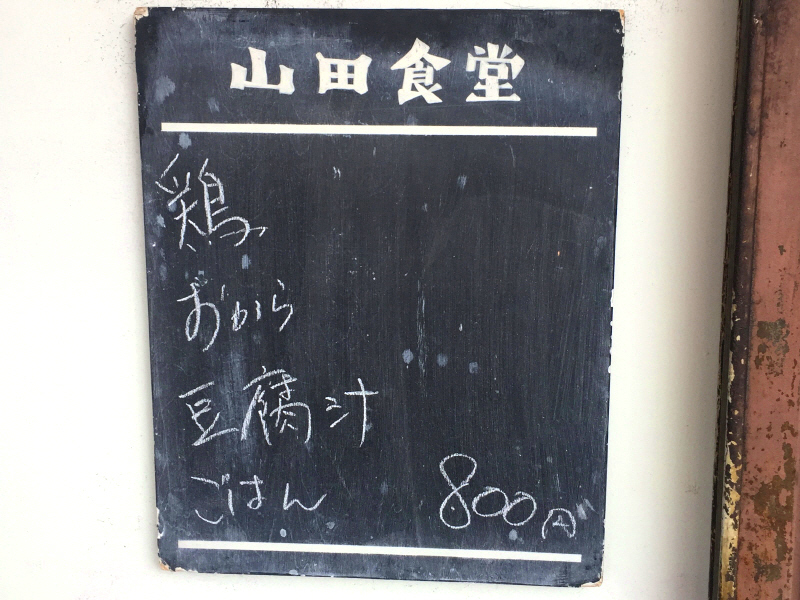 山田食堂
鶏
おから
豆腐汁
ごはん 800円